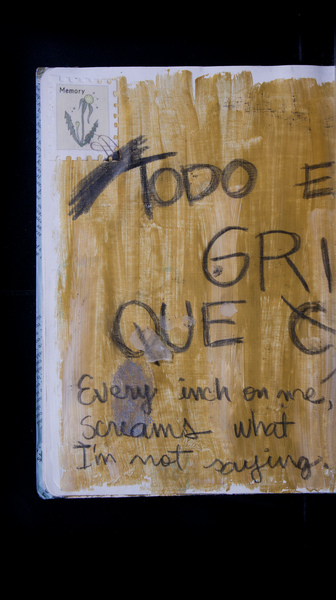 Memory
TODO E
GRI
QUE
Every inch on me,
screams what
I'm not saying.